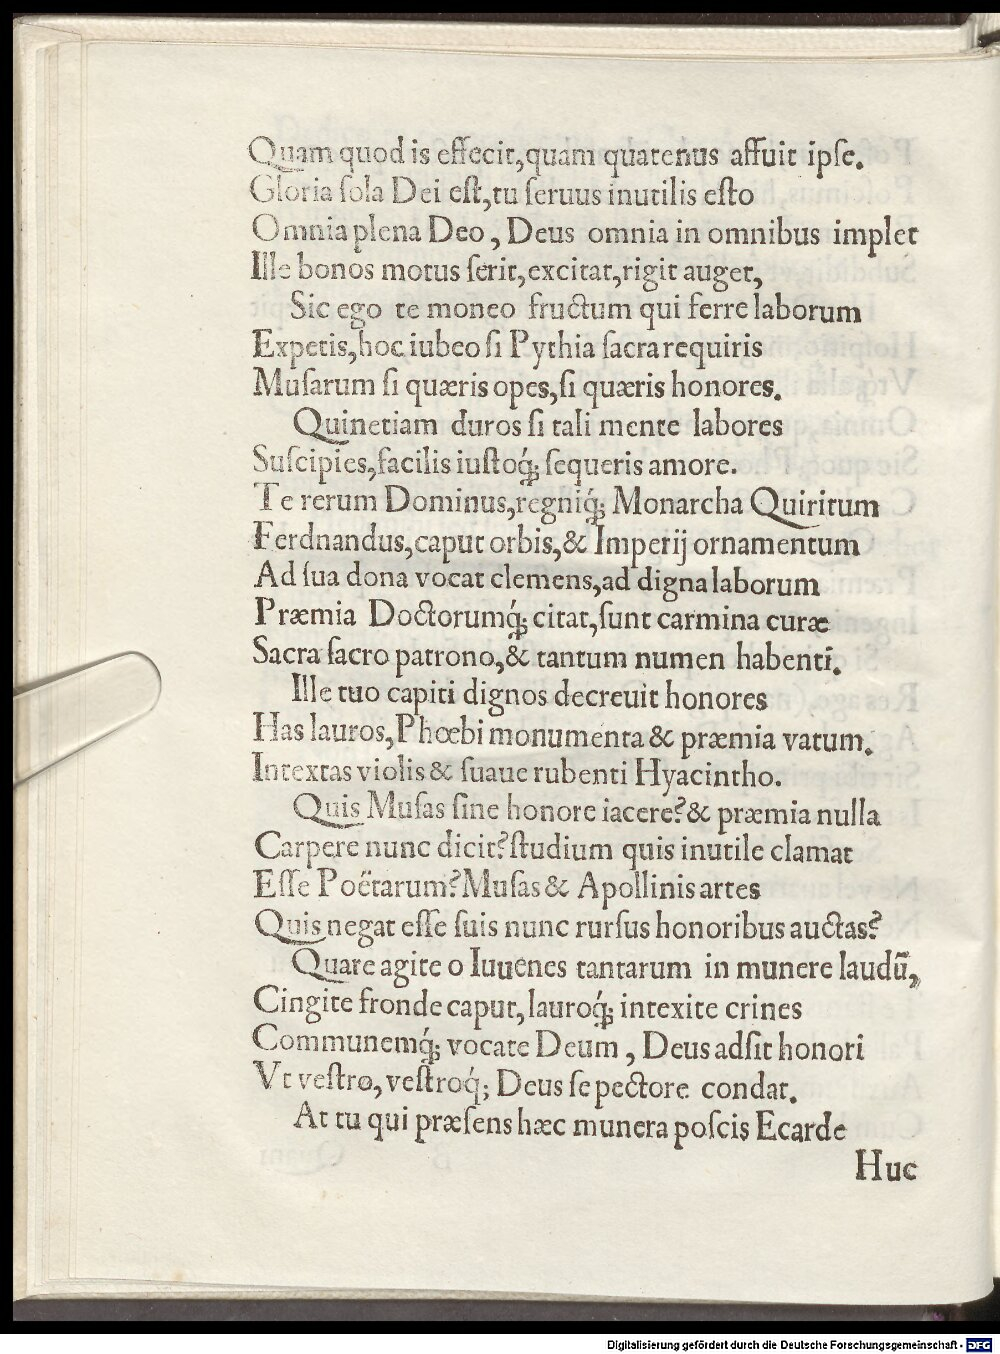 Quam quod is effecit,quam quatenus affuit ipſe.
Gloria ſola Dei eſt,tu ſeruus inutilis eſto
Omnia plena Deo , Deus omnia in omnibus implet
Ille bonos motus ſerit,excitat,rigit auget,
Sic ego te moneo fructum qui ferre laborum
Expetis,hoc iubeo ſi Pythia ſacra requiris
Muſarum ſi quæris opes,ſi quæris honores.
Quinetiam duros ſi tali mente labores
Suſcipies,facilis iuſtoq́; ſequeris amore.
Te rerum Dominus,regniq́; Monarcha Quiritum
Ferdnandus,caput orbis,& Imperij ornamentum
Ad ſua dona vocat clemens,ad digna laborum
Præmia Doctorumq́; citat,ſunt carmina curæ
Sacra ſacro patrono,& tantum numen habenti.
Ille tuo capiti dignos decreuit honores
Has lauros,Phœbi monumenta & præmia vatum.
Intextas violis & ſuaue rubenti Hyacintho.
Quis Muſas ſine honore iacere?& præmia nulla
Carpere nunc dicit?ſtudium quis inutile clamat
Eſſe Poëtarum?Muſas & Apollinis artes
Quis negat eſſe ſuis nunc rurſus honoribus auctas?
Quare agite o Iuuenes tantarum in munere laudū,
Cingite fronde caput,lauroq́; intexite crines
Communemq́; vocate Deum , Deus adſit honori
Vt veſtro,veſtroq́; Deus ſe pectore condat.
At tu qui præſens hæc munera poſcis Ecarde
Huc
Digitalisierung gefördert durch die Deutsche Forschungsgemeinschaft - DFG